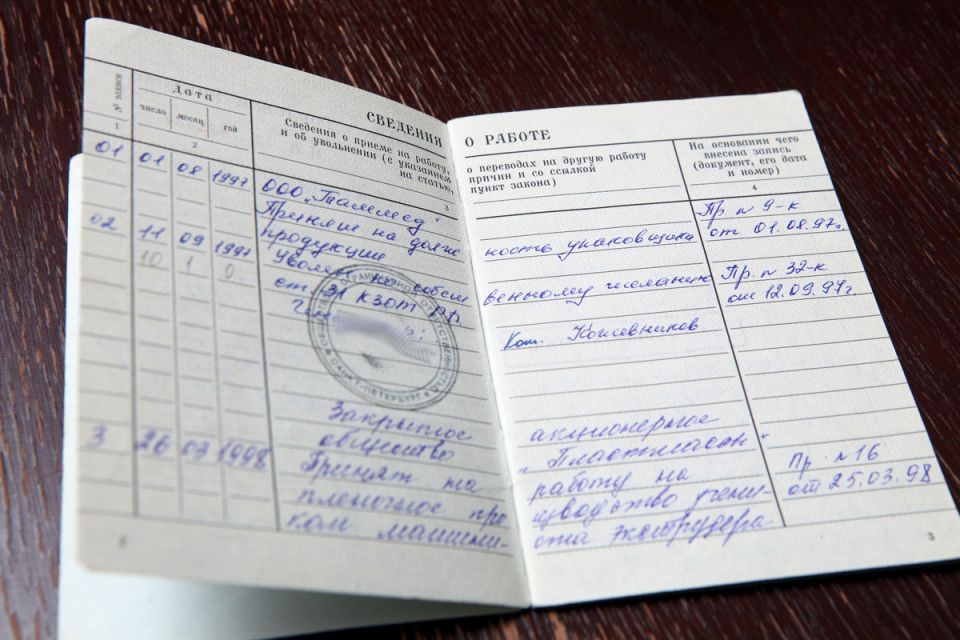 СВЕДЕНИЯ О РАБОТЕ
№ записи
Дата
число
месяц
год
Сведения о приеме на работу,
и об увольнении (с указанием
на статью,
о переводах на другую работу
причин и со ссылкой
пункт закона)
На основании чего
внесена запись
(документ, его дата
и номер)
1
2
3
4
ООО „Таммед"
01 01 08 1997 Принят на должность упаковщика Пр. № 9-к
продукции от 01.08.97г.
02 11 09 1997 Уволен по собственному желанию Пр. № 32-к
10 1 0
ст. 31 КЗОТ РФ от 12.09.97г.
Кожевников
ОГРАНИЧЕННОЙ ОТВЕТСТВЕННОСТЬЮ
САНКТ-ПЕТЕРБУРГ
Закрытое акционерное
общество „Пластмассы"
3 26 03 1998 Принят на работу на Пр. №16
пленочное производство учени- от 25.03.98
ком машиниста экструдера
3